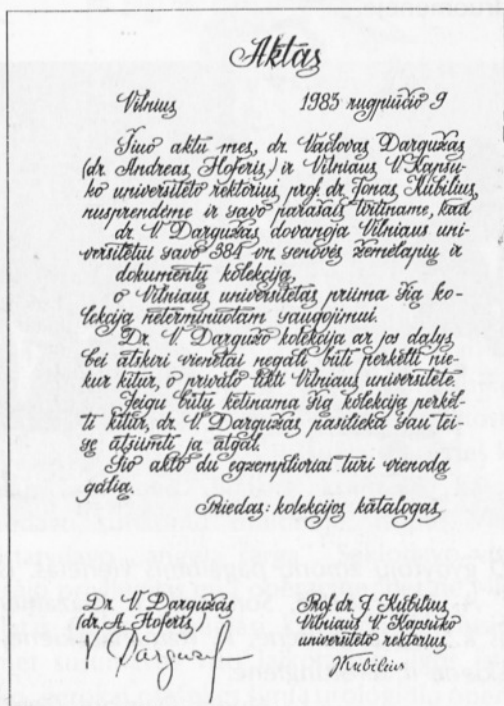 Aktas
Vilnius 1983 rugpiūčio 9
Šiuo aktu mes, dr. Vaclovas Dargužas
(dr. Andreas Hoferis) ir Vilniaus V. Kapsu-
ko universiteto rektorius, prof. dr. Jonas Kubilius,
nusprendėme ir savo parašais tvirtiname, kad
dr. V. Dargužas dovanoja Vilniaus uni-
versitetui savo 384 vn. senovės žemėlapių ir
dokumentų kolekciją,
o Vilniaus universitetas priima šią ko-
lekciją neterminuotam saugojimui.
Dr. V. Dargužo kolekcija ar jos dalys
bei atskiri vienetai negali būti perkelti nie-
kur kitur, o privalo likti Vilniaus universitete.
Jeigu būtų ketinama šią kolekciją perkel-
ti kitur, dr. V. Dargužas pasilieka sau tei-
sę atsiimti ją atgal.
Šio akto du egzemplioriai turi vienodą
galią.
Priedas: kolekcijos katalogas.
Dr. V. Dargužas
(dr. A. Hoferis)
V. Dargužas
Prof. dr. J. Kubilius
Vilniaus V. Kapsuko
universiteto rektorius
J. Kubilius